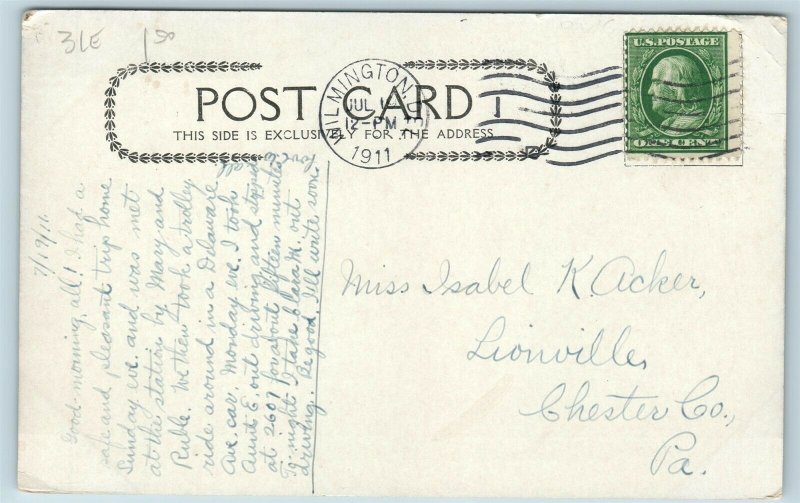 31E 1.50
POST CARD
THIS SIDE IS EXCLUSIVELY FOR THE ADDRESS
WILMINGTON, D
JUL 1
12-PM
1911
1
U.S. POSTAGE
ONE CENT
7/19/11.
Good-morning, all! I had a
safe and pleasant trip home
Sunday eve. and was met
at the station by Mary and
Ruble. We then took a trolley
ride around in a Delaware
Ave. car. Monday eve. I took
Aunt E. out driving and stopped
at 2601 for about fifteen minutes
To-night I take Clara M. out
driving. Be good. I'll write soon.
Love to all
Miss Isabel K. Acker,
Lionville,
Chester Co.,
Pa.